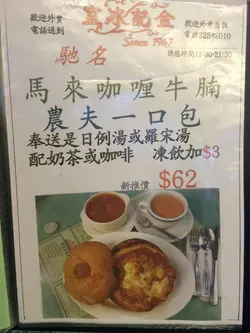 歡迎外賣
電話送到
金記冰室
Since 1967
歡迎外賣自取
電話22542010
供應時間11:30-21:30
馳名
馬來咖喱牛腩
農夫一口包
奉送是日例湯或羅宋湯
配奶茶或咖啡 凍飲加$3
新推價 $62